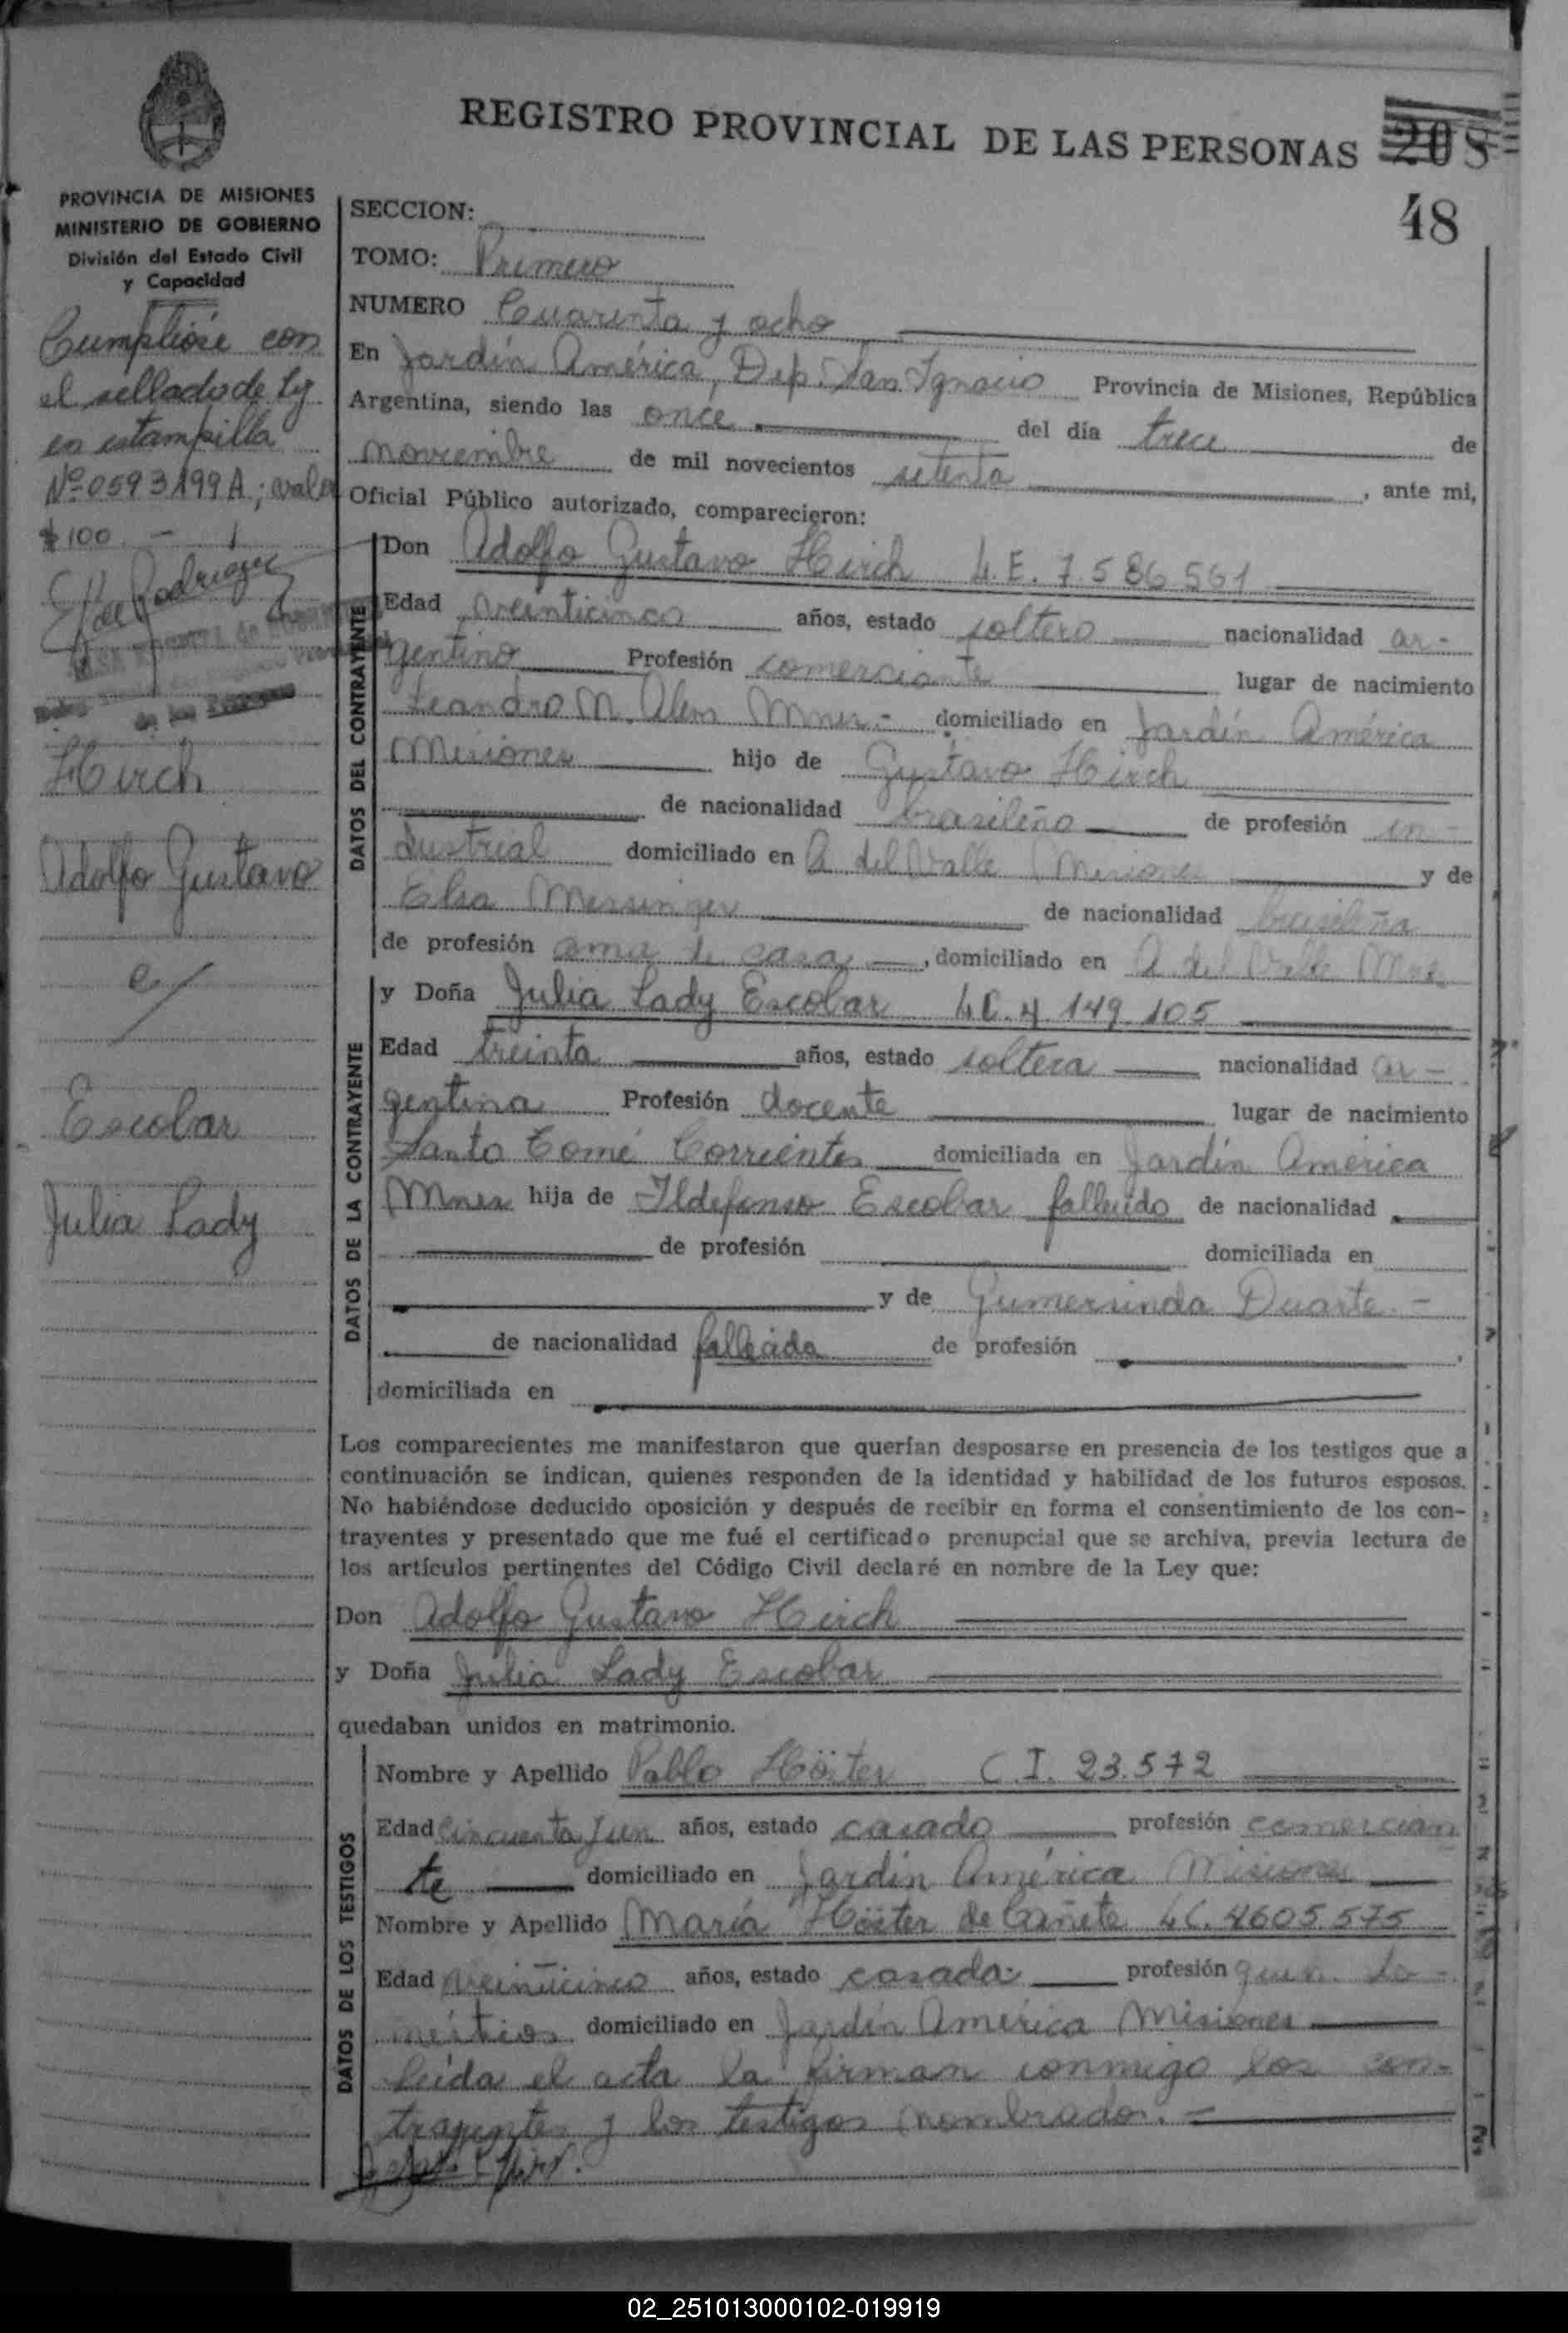 REGISTRO PROVINCIAL DE LAS PERSONAS 208
48
PROVINCIA DE MISIONES
MINISTERIO DE GOBIERNO
División del Estado Civil
y Capacidad
Cumplióse con
el sellado de Ley
en estampilla
Nº 0593199A; valor
$ 100.-
de las
Hirch
Adolfo Gustavo
c/
Escobar
Julia Lady
SECCION:
TOMO: Primero
NUMERO Cuarenta y ocho
En Jardín América, Dep. San Ignacio Provincia de Misiones, República
Argentina, siendo las once del día trece de
noviembre de mil novecientos setenta, ante mi,
Oficial Público autorizado, comparecieron:
DATOS DEL CONTRAYENTE
Don Adolfo Gustavo Hirch L.E. 7.586.561
Edad veinticinco años, estado soltero nacionalidad ar-
gentino Profesión comerciante lugar de nacimiento
Leandro N. Alem Mnes.- domiciliado en Jardín América
Misiones hijo de Gustavo Hirch
de nacionalidad brasileño de profesión in-
dustrial domiciliado en A. del Valle Misiones y de
Elsa Messinger de nacionalidad brasileña
de profesión ama de casa, domiciliado en A. del Valle Mnes.
DATOS DE LA CONTRAYENTE
y Doña Julia Lady Escobar L.C. 4.149.105
Edad treinta años, estado soltera nacionalidad ar-
gentina Profesión docente lugar de nacimiento
Santo Tomé Corrientes domiciliada en Jardín América
Mnes hija de Ildefonso Escobar fallecido de nacionalidad
de profesión domiciliada en
y de Gumersinda Duarte.-
de nacionalidad fallecida de profesión ,
domiciliada en
Los comparecientes me manifestaron que querían desposarse en presencia de los testigos que a
continuación se indican, quienes responden de la identidad y habilidad de los futuros esposos.
No habiéndose deducido oposición y después de recibir en forma el consentimiento de los con-
trayentes y presentado que me fué el certificado prenupcial que se archiva, previa lectura de
los artículos pertinentes del Código Civil declaré en nombre de la Ley que:
Don Adolfo Gustavo Hirch
y Doña Julia Lady Escobar
quedaban unidos en matrimonio.
DATOS DE LOS TESTIGOS
Nombre y Apellido Pablo Höster C.I. 23.572
Edad cincuenta y un años, estado casado profesión comercian
te domiciliado en Jardín América Misiones
Nombre y Apellido María Höster de Cañete L.C. 4605.575
Edad veinticinco años, estado casada profesión queh. do-
mésticos domiciliado en Jardín América Misiones
Leída el acta la firman conmigo los con-
trayentes y los testigos nombrados.-
02_251013000102-019919